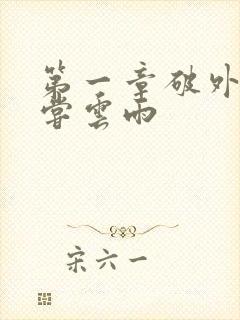 第一章破外
嘗雲雨
宋六一